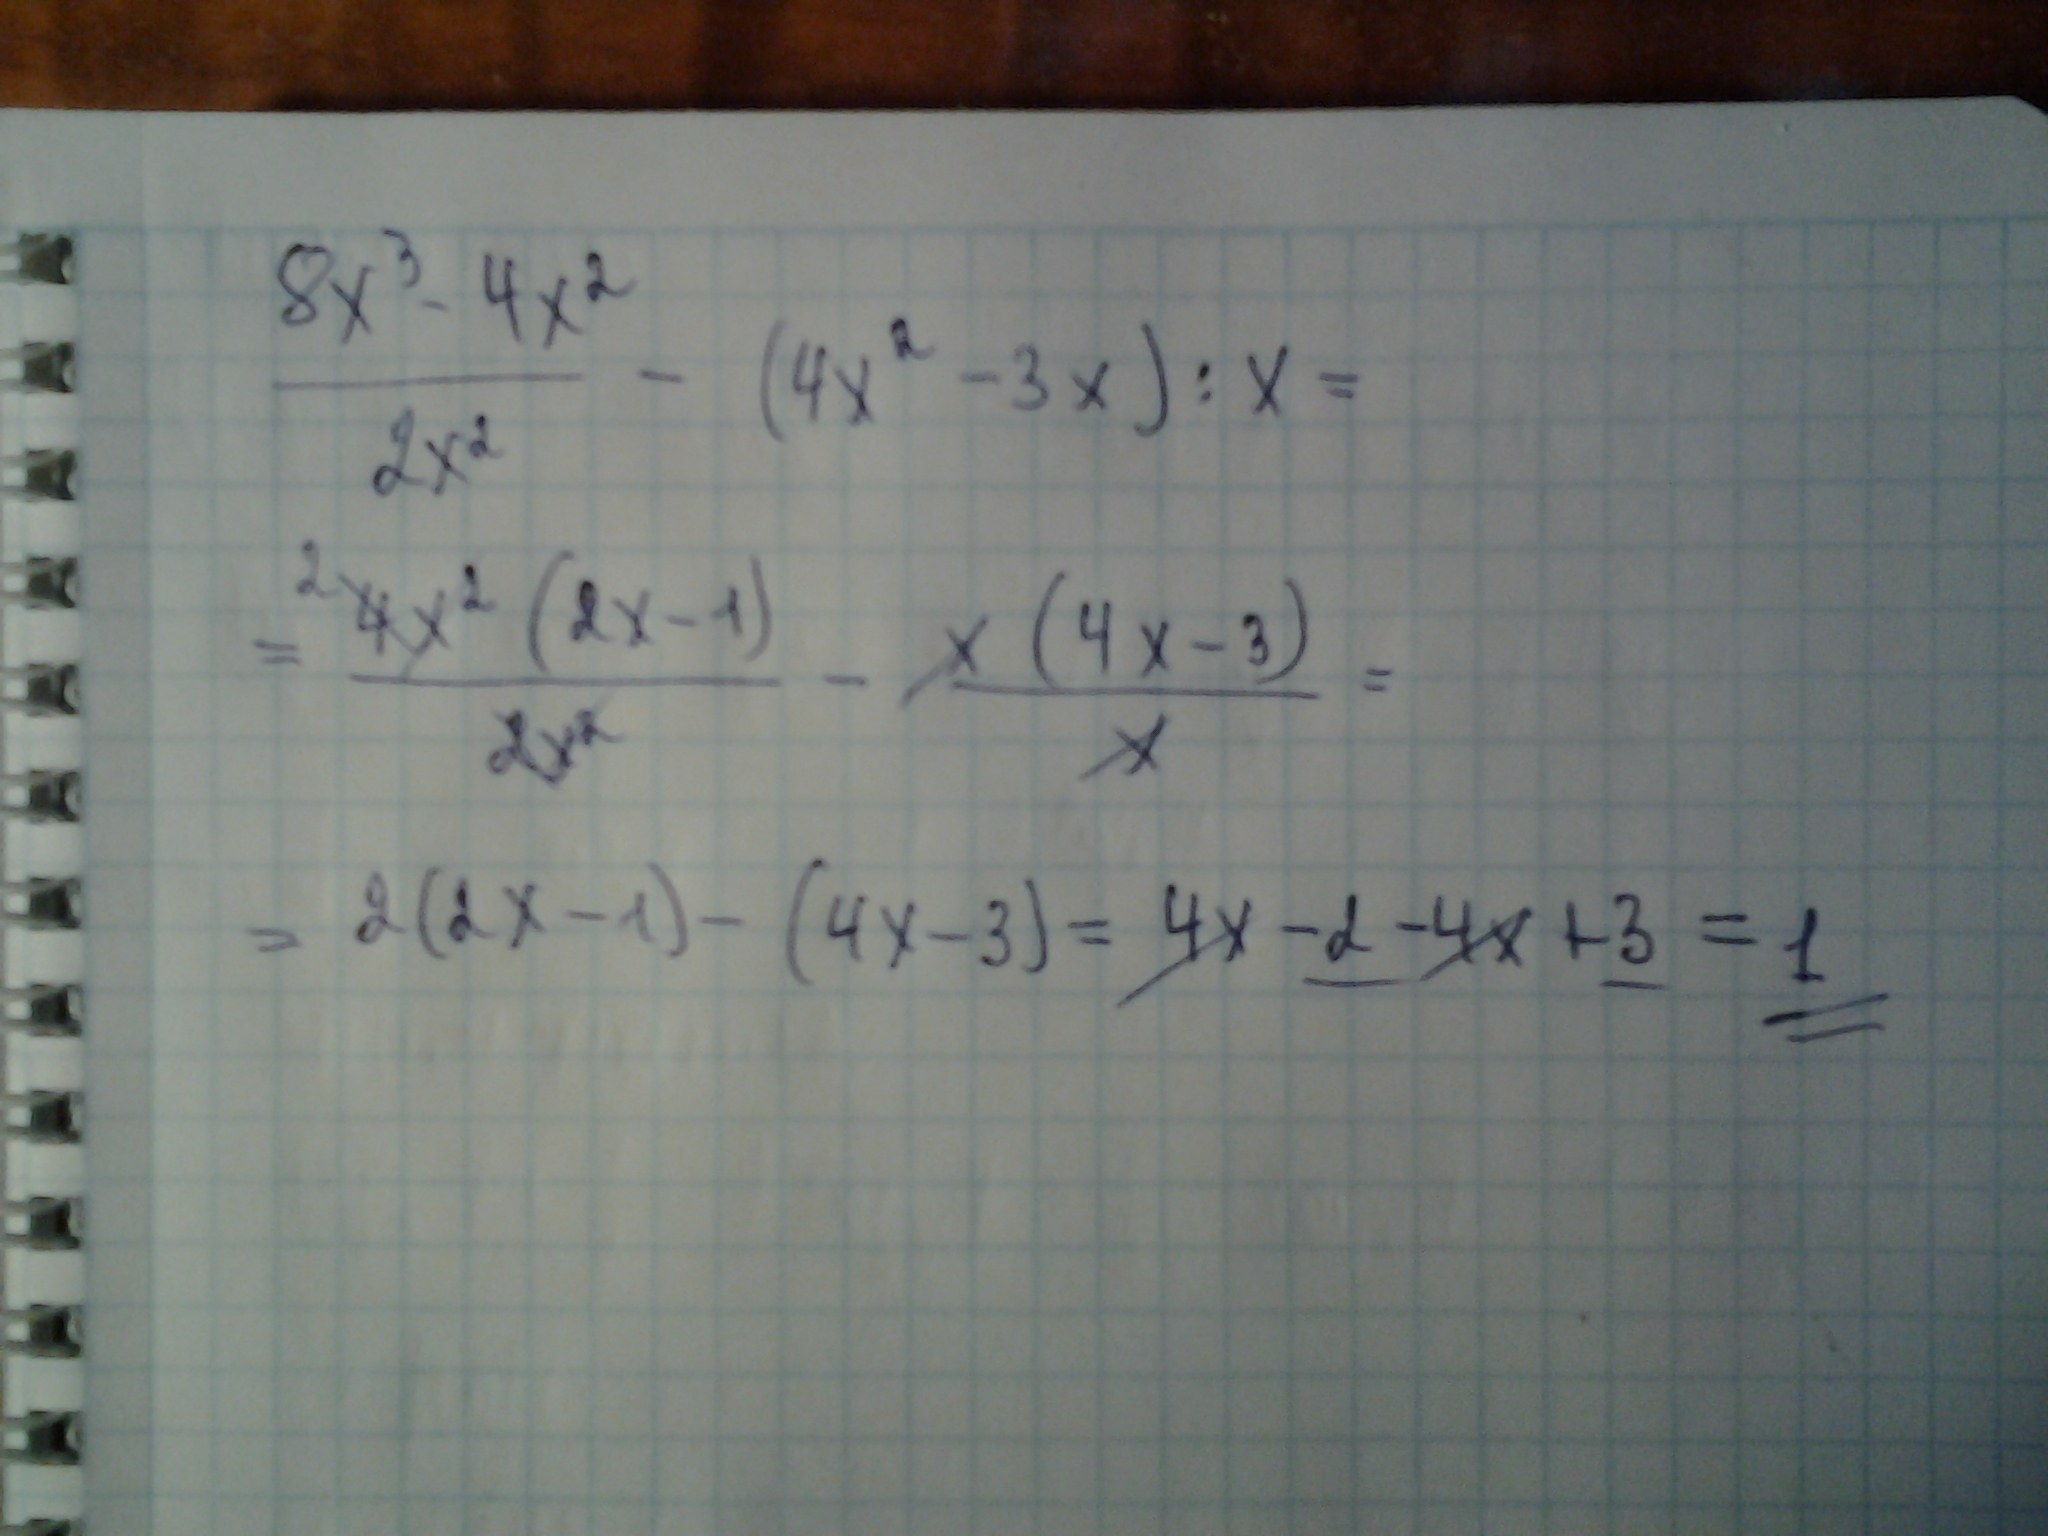 8x³ - 4x² / 2x² - (4x² - 3x) : x =
= ² 4x² (2x - 1) / 2x² - x (4x - 3) / x =
= 2(2x - 1) - (4x - 3) = 4x - 2 - 4x + 3 = 1